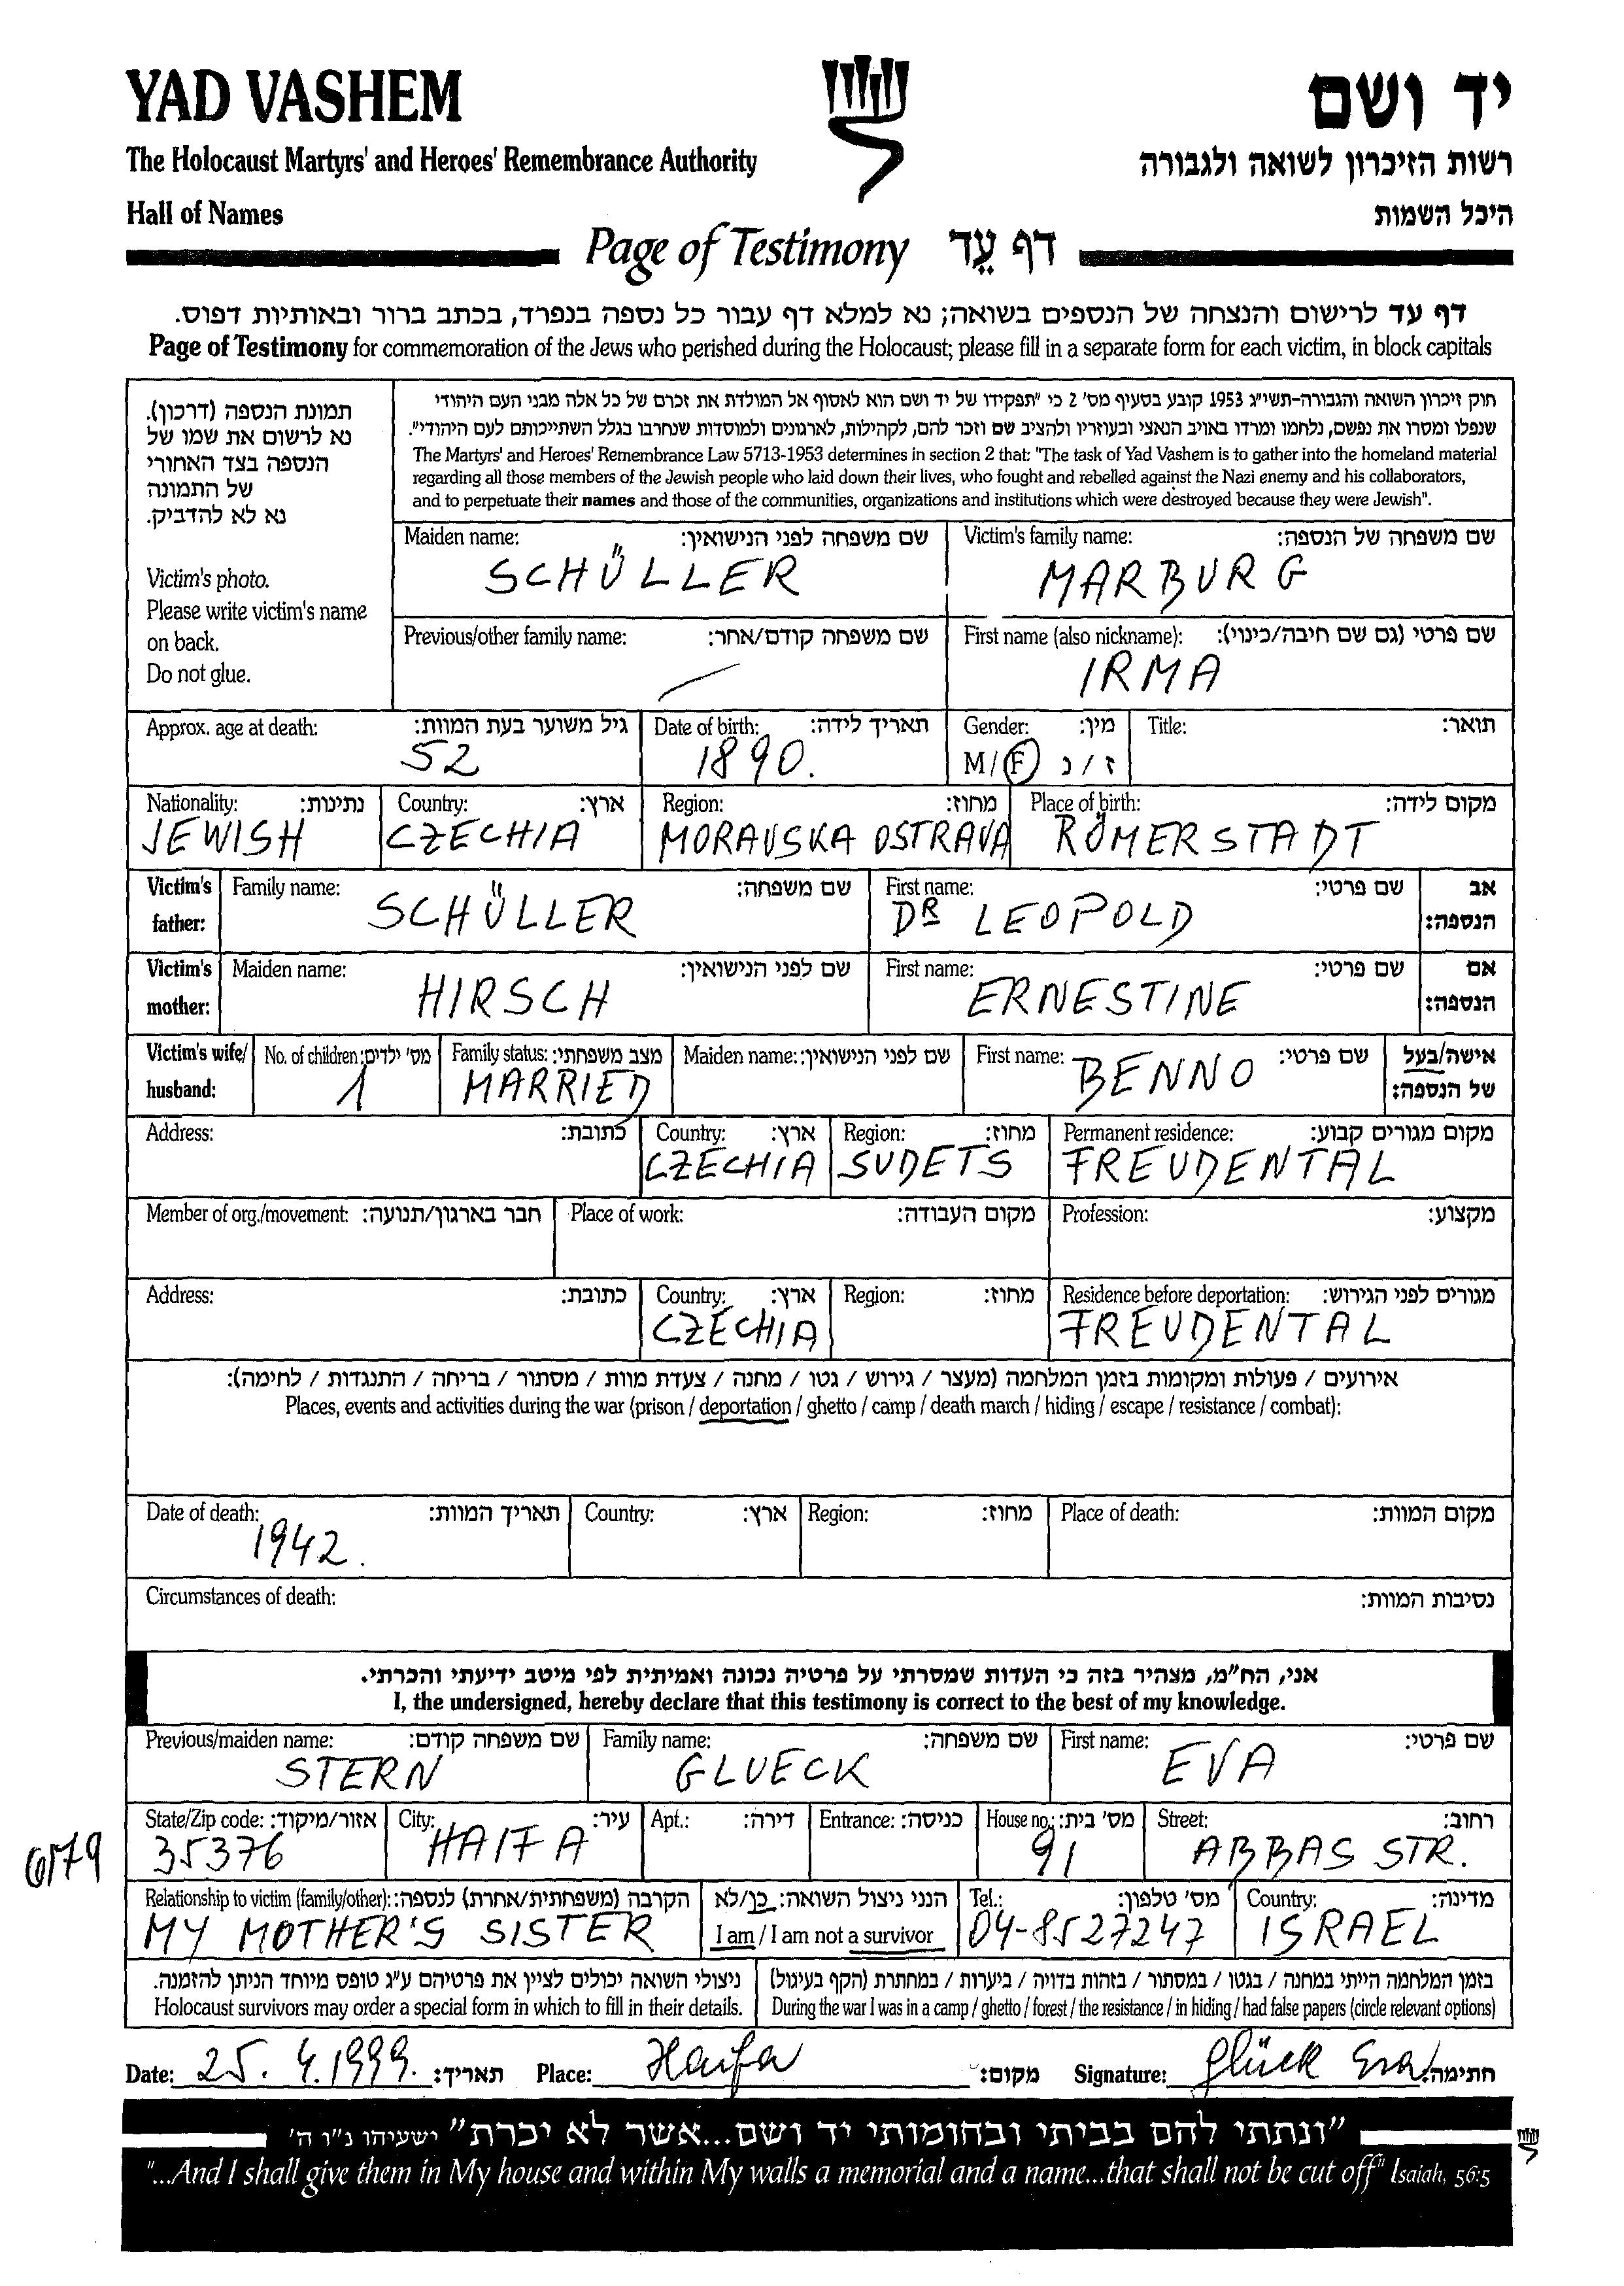 YAD VASHEM
יד ושם
The Holocaust Martyrs' and Heroes' Remembrance Authority
רשות הזיכרון לשואה ולגבורה
Hall of Names
היכל השמות
Page of Testimony דף עֵד
דף עד לרישום והנצחה של הנספים בשואה; נא למלא דף עבור כל נספה בנפרד, בכתב ברור ובאותיות דפוס.
Page of Testimony for commemoration of the Jews who perished during the Holocaust; please fill in a separate form for each victim, in block capitals
תמונת הנספה (דרכון).
נא לרשום את שמו של
הנספה בצד האחורי
של התמונה
נא לא להדביק.
Victim's photo.
Please write victim's name
on back.
Do not glue.
חוק זיכרון השואה והגבורה-תשי"ג 1953 קובע בסעיף מס' 2 כי "תפקידו של יד ושם הוא לאסוף אל המולדת את זכרם של כל אלה מבני העם היהודי
שנפלו ומסרו את נפשם, נלחמו ומרדו באויב הנאצי ובעוזריו ולהציב שם וזכר להם, לקהילות, לארגונים ולמוסדות שנחרבו בגלל השתייכותם לעם היהודי".
The Martyrs' and Heroes' Remembrance Law 5713-1953 determines in section 2 that: "The task of Yad Vashem is to gather into the homeland material
regarding all those members of the Jewish people who laid down their lives, who fought and rebelled against the Nazi enemy and his collaborators,
and to perpetuate their names and those of the communities, organizations and institutions which were destroyed because they were Jewish".
Maiden name: שם משפחה לפני הנישואין: Victim's family name: שם משפחה של הנספה:
SCHÜLLER MARBURG
Previous/other family name: שם משפחה קודם/אחר: First name (also nickname): שם פרטי (גם שם חיבה/כינוי):
IRMA
Approx. age at death: גיל משוער בעת המוות: Date of birth: תאריך לידה: Gender: מין: Title: תואר:
52 1890. M/F ז/נ
Nationality: נתינות: Country: ארץ: Region: מחוז: Place of birth: מקום לידה:
JEWISH CZECHIA MORAVSKA OSTRAVA RÖMERSTADT
Victim's father: Family name: שם משפחה: First name: שם פרטי: אב הנספה:
SCHÜLLER DR LEOPOLD
Victim's mother: Maiden name: שם לפני הנישואין: First name: שם פרטי: אם הנספה:
HIRSCH ERNESTINE
Victim's wife/ husband: No. of children: מס' ילדים: Family status: מצב משפחתי: Maiden name: שם לפני הנישואין: First name: שם פרטי: אישה/בעל של הנספה:
1 MARRIED BENNO
Address: כתובת: Country: ארץ: Region: מחוז: Permanent residence: מקום מגורים קבוע:
CZECHIA SUDETS FREUDENTAL
Member of org./movement: חבר בארגון/תנועה: Place of work: מקום העבודה: Profession: מקצוע:
Address: כתובת: Country: ארץ: Region: מחוז: Residence before deportation: מגורים לפני הגירוש:
CZECHIA FREUDENTAL
אירועים / פעולות ומקומות בזמן המלחמה (מעצר / גירוש / גטו / מחנה / צעדת מוות / מסתור / בריחה / התנגדות / לחימה):
Places, events and activities during the war (prison / deportation / ghetto / camp / death march / hiding / escape / resistance / combat):
Date of death: תאריך המוות: Country: ארץ: Region: מחוז: Place of death: מקום המוות:
1942.
Circumstances of death: נסיבות המוות:
אני, הח"מ, מצהיר בזה כי העדות שמסרתי על פרטיה נכונה ואמיתית לפי מיטב ידיעתי והכרתי.
I, the undersigned, hereby declare that this testimony is correct to the best of my knowledge.
Previous/maiden name: שם משפחה קודם: Family name: שם משפחה: First name: שם פרטי:
STERN GLUECK EVA
State/Zip code: אזור/מיקוד: City: עיר: Apt.: דירה: Entrance: כניסה: House no.: מס' בית: Street: רחוב:
35376 HAIFA 91 ABBAS STR.
Relationship to victim (family/other): הקרבה (משפחתית/אחרת) לנספה: הנני ניצול השואה: כן/לא Tel.: מס' טלפון: Country: מדינה:
MY MOTHER'S SISTER I am / I am not a survivor 04-8527247 ISRAEL
ניצולי השואה יכולים לציין את פרטיהם ע"ג טופס מיוחד הניתן להזמנה. בזמן המלחמה הייתי במחנה / בגטו / במסתור / בזהות בדויה / ביערות / במחתרת (הקף בעיגול)
Holocaust survivors may order a special form in which to fill in their details. During the war I was in a camp / ghetto / forest / the resistance / in hiding / had false papers (circle relevant options)
Date: 25. 4. 1999. תאריך: Place: Haifa מקום: Signature: Glück Eva חתימה:
"ונתתי להם בביתי ובחומותי יד ושם...אשר לא יכרת" ישעיהו נ"ו ה'
"...And I shall give them in My house and within My walls a memorial and a name...that shall not be cut off" Isaiah, 56:5